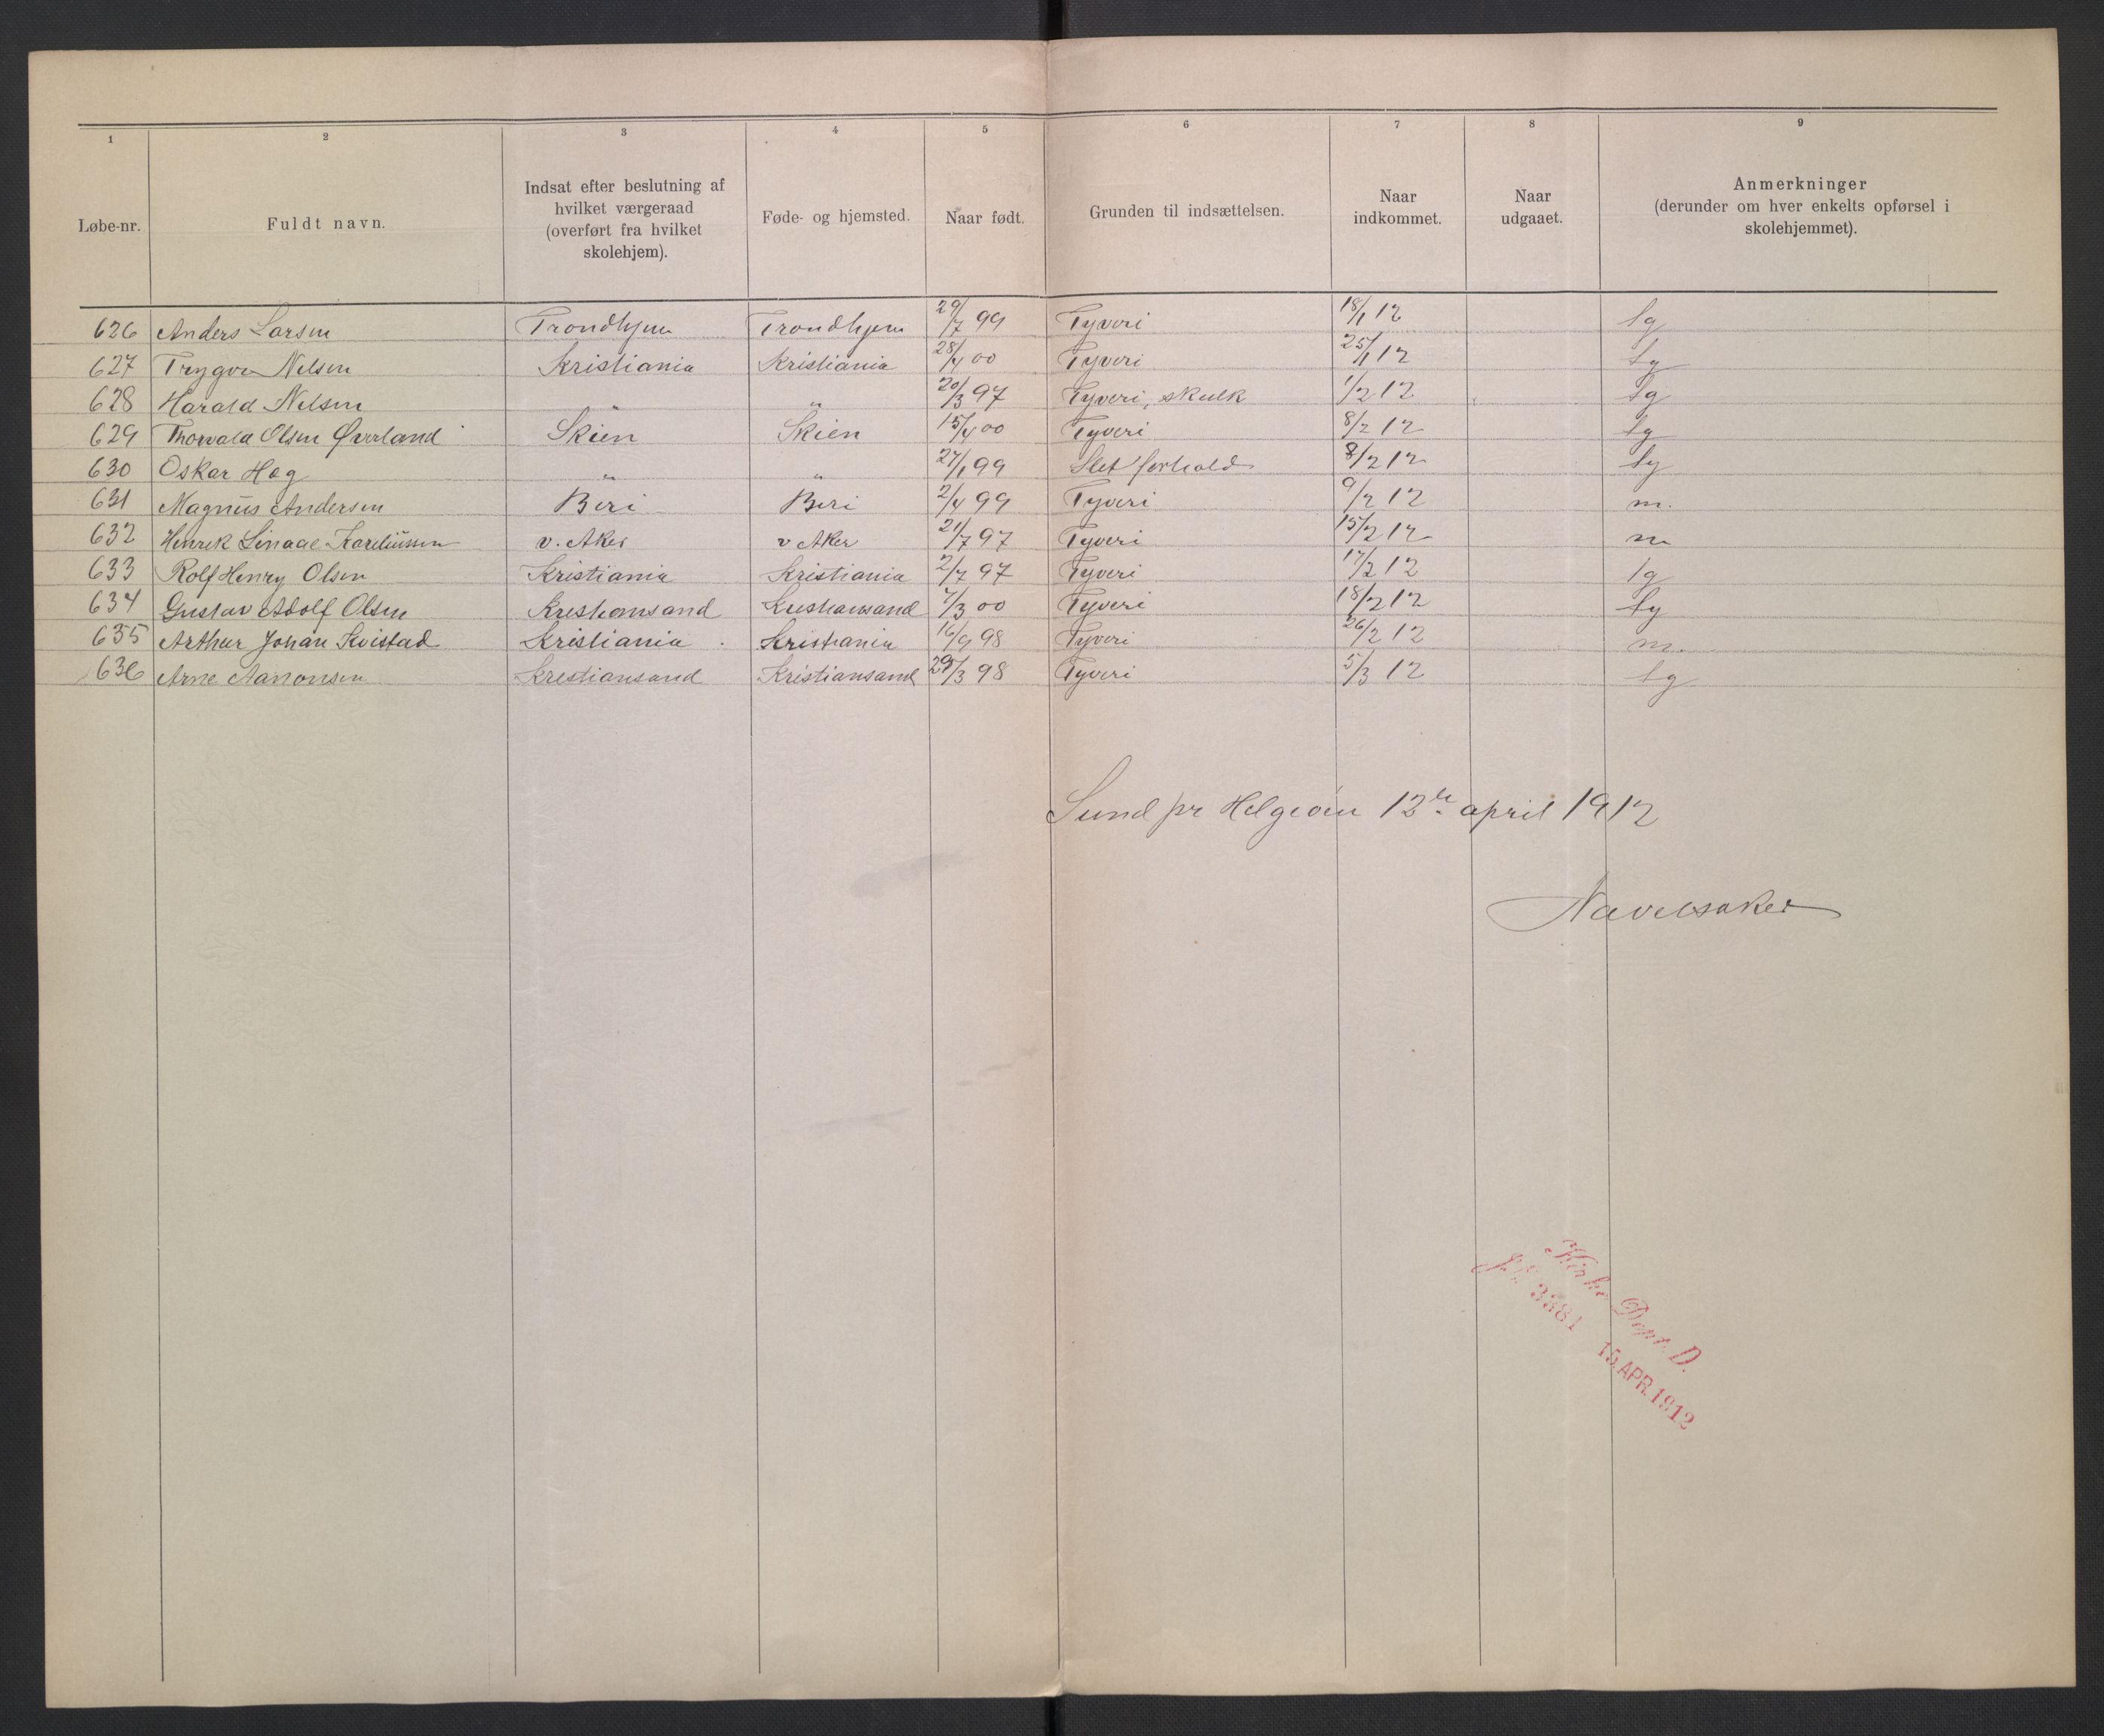 1 2 3 4 5 6 7 8 9
Løbe-nr. Fuldt navn. Indsat efter beslutning af hvilket værgeraad (overført fra hvilket skolehjem). Føde- og hjemsted. Naar født. Grunden til indsættelsen. Naar indkommet. Naar udgaaet. Anmerkninger (derunder om hver enkelts opførsel i skolehjemmet).
626 Anders Larsen Trondhjem Trondhjem 29/7 99 Tyveri 18/1 12 tg
627 Trygve Nelsen Kristiania Kristiania 28/4 00 Tyveri 25/1 12 tg
628 Harald Nelsen " " 20/3 97 Tyveri, skulk 1/2 12 tg
629 Thorvald Olsen Øverland Skien Skien 15/4 00 Tyveri 8/2 12 tg
630 Oskar Hag " " 27/1 99 Slet forhold 8/2 12 tg
631 Magnus Andersen Beri Beri 2/4 99 Tyveri 9/2 12 m.
632 Henrek Kareliussen v. Aker v Aker 21/7 97 Tyveri 15/2 12 m
633 Rolf Henry Olsen Kristiania Kristiania 2/7 97 Tyveri 17/2 12 tg
634 Gustav Adolf Olsen Kristiansand Kristiansand 7/3 00 Tyveri 18/2 12 tg
635 Arthur Johan Kvistad Kristiania Kristiania 16/9 98 Tyveri 26/2 12 m.
636 Arne Aanonsen Kristiansand Kristiansand 29/3 98 Tyveri 5/3 12 tg
Sund pr Helgøen 12te april 1912
Navelsaker
Kirke Dept. D.
Jr. 3381 15. APR. 1912